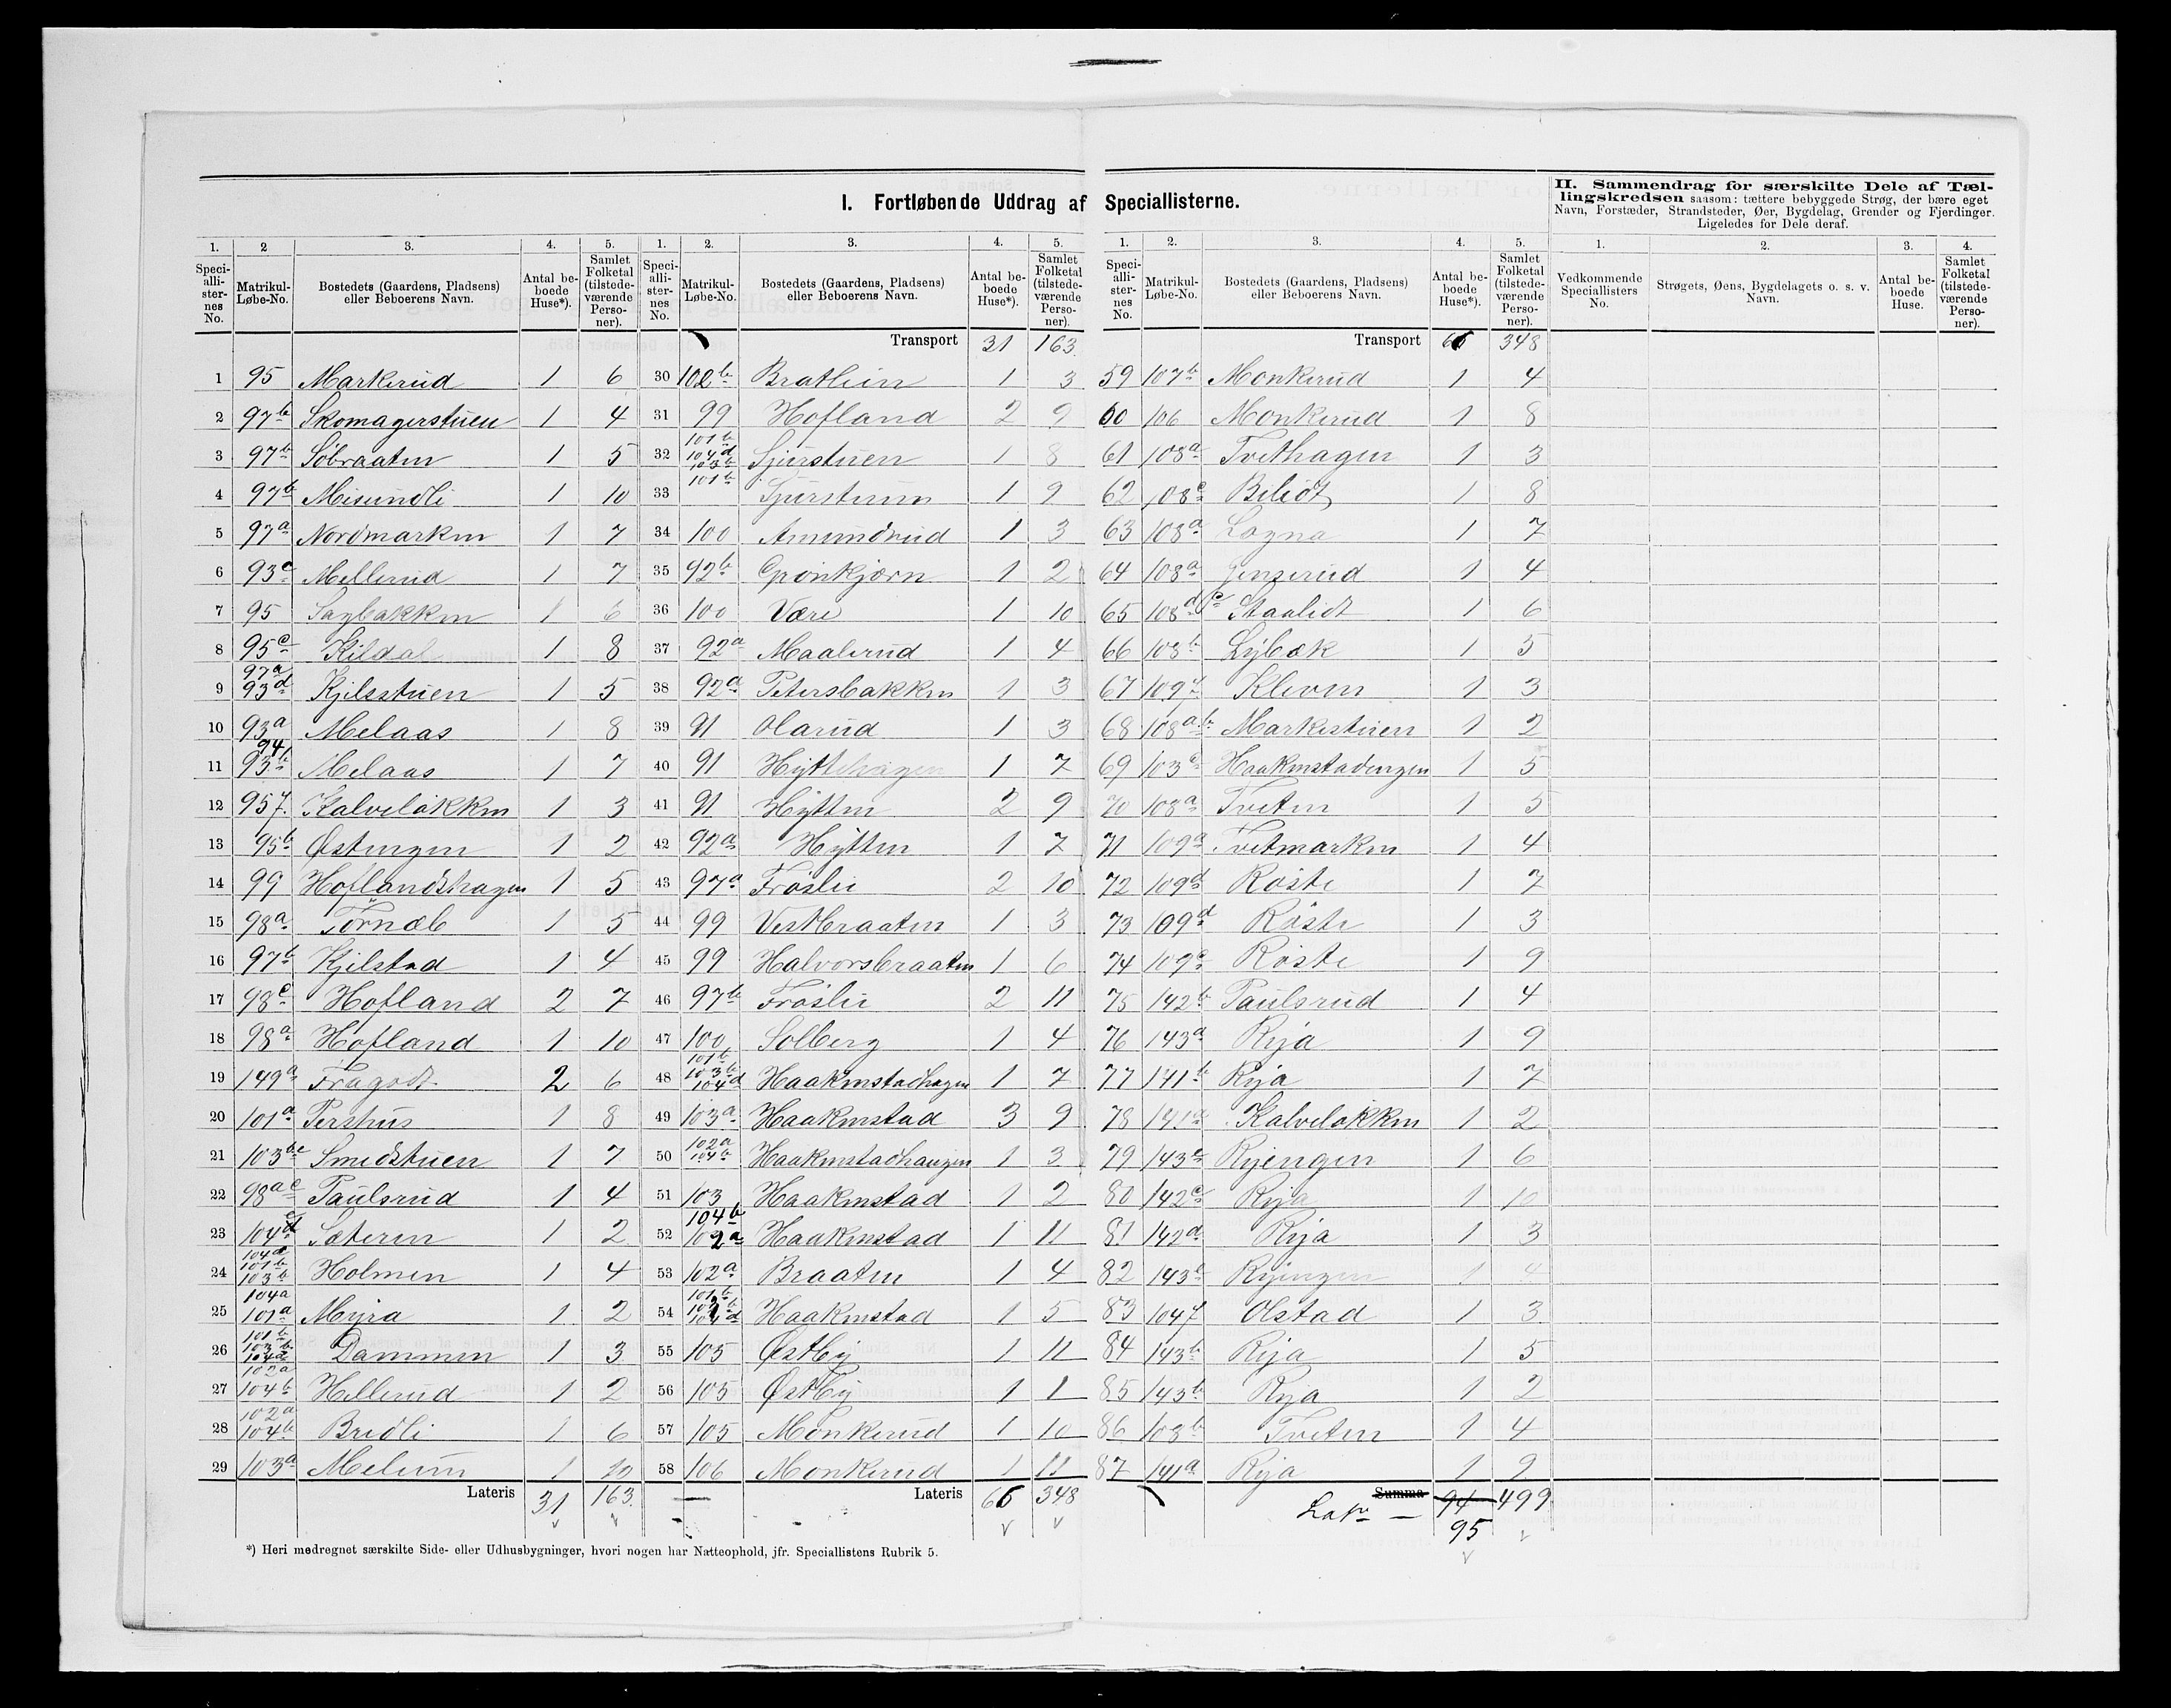 I. Fortløbende Uddrag af Speciallisterne.
II. Sammendrag for særskilte Dele af Tællingskredsen saasom: tættere bebyggede Strøg, der bære eget Navn, Forstæder, Strandsteder, Øer, Bygdelag, Grender og Fjerdinger. Ligeledes for Dele deraf.
1. 2 3. 4. 5. 1. 2. 3. 4. 5. 1. 2. 3. 4. 5. 1. 2. 3. 4.
Speciallisternes No. Matrikul-Løbe-No. Bostedets (Gaardens, Pladsens) eller Beboerens Navn. Antal beboede Huse*). Samlet Folketal (tilstedeværende Personer).
Speciallisternes No. Matrikul-Løbe-No. Bostedets (Gaardens, Pladsens) eller Beboerens Navn. Antal beboede Huse*). Samlet Folketal (tilstedeværende Personer).
Speciallisternes No. Matrikul-Løbe-No. Bostedets (Gaardens, Pladsens) eller Beboerens Navn. Antal beboede Huse*). Samlet Folketal (tilstedeværende Personer).
Vedkommende Speciallisters No. Strøgets, Øens, Bygdelagets o. s. v. Navn. Antal beboede Huse. Samlet Folketal (tilstedeværende Personer).
1 95 Markerud 1 6
2 97b Skomagerstuen 1 4
3 97b Söbraaten 1 5
4 97b Misundli 1 10
5 97a Nordmarken 1 7
6 93c Mellerud 1 7
7 95 Sagbakken 1 6
8 95c Kildal 1 8
9 97a 93d Kjilsstuen 1 5
10 93a Melaas 1 8
11 94 93b Melaas 1 7
12 95f. Kalvelökken 1 3
13 95b Østengen 1 2
14 99 Hoflandshagen 1 5
15 98a Törnæb 1 5
16 97b Kjilstad 1 4
17 98c Hofland 2 7
18 98a Hofland 1 10
19 149a Fragodt 2 6
20 101a Pershus 1 8
21 103bc Smedstuen 1 7
22 98ac Paulsrud 1 4
23 104d Sæteren 1 2
24 104d 101b 103b Holmen 1 4
25 104a 101a Myra 1 2
26 101b 103b 104d Dammen 1 3
27 102a 104b Hellerud 1 2
28 102a 104b Bredli 1 6
29 103a Melum 1 10
Lateris 31 163.
Transport 31 163.
30 102b Brathein 1 3
31 99 Hofland 2 9
32 101b 104d 103b Sjurstuen 1 8
33 101b Sjurstuen 1 9
34 100 Amundrud 1 3
35 92b Grönkjærn 1 2
36 100 Være 1 10
37 92a Maalerud 1 4
38 92a Petersbakken 1 3
39 91 Olarud 1 3
40 91 Hyttehagen 1 7
41 91 Hytten 2 9
42 92a Hytten 1 7
43 97a Fröslie 2 10
44 99 Vestbraaten 1 3
45 99 Halvorsbraaten 1 6
46 97b Fröslie 2 11
47 100 Solberg 1 4
48 101b 103b 104d Haakenstadhagen 1 7
49 103a Haakenstad 3 9
50 102a 104b Haakenstadhaugen 1 3
51 103 Haakenstad 1 2
52 104b 102a Haakenstad 1 11
53 102a Braaten 1 4
54 101b Haakenstad 1 5
55 105 Østby 1 11
56 105 Østby 1 1
57 105 Monkerud 1 10
58 106 Monkerud 1 11
Lateris 66 348
Transport 66 348
59 107b Monkerud 1 4
60 106 Monkerud 1 8
61 108a Tvethagen 1 3
62 108c Belidt 1 8
63 108a Logna 1 7
64 108a 1 4
65 108d Staalidt 1 6
66 108b Lybæk 1 5
67 109f Kleven 1 3
68 108ab Markestuen 1 2
69 103c Haakenstadengen 1 5
70 108a Tveten 1 5
71 109a Tvetmarken 1 4
72 109d Röste 1 7
73 109d Röste 1 3
74 109c Röste 1 9
75 142b Paulsrud 1 4
76 143a Rya 1 9
77 141b Rya 1 7
78 141a Kalvelökken 1 2
79 143c Ryengen 1 6
80 142c Rya 1 10
81 142d Rya 1 3
82 143b Ryengen 1 4
83 104f Olstad 1 3
84 143b Rya 1 5
85 143b Rya 1 2
86 108b Tveten 1 4
87 141a Rya 1 9
Summa Latr — 94 499
95
*) Heri medregnet særskilte Side- eller Udhusbygninger, hvori nogen har Natteophold, jfr. Speciallistens Rubrik 5.